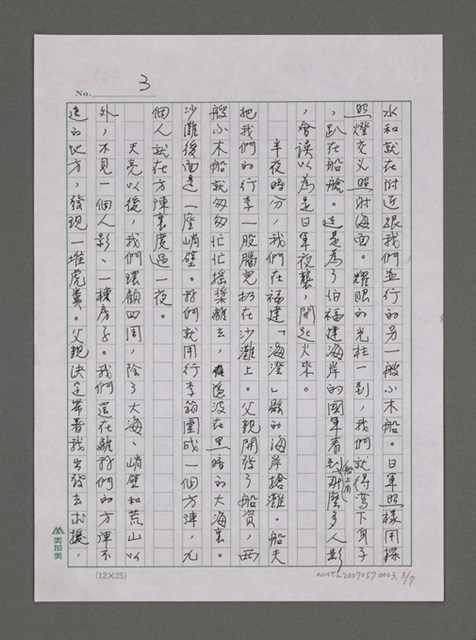 No. 3
水和就在附近跟我們並行的另一艘小木船。日軍照樣用探
照燈交叉照射海面。耀眼的光柱一到,我們就得彎下身子
,趴在船艙。這是為了怕福建海岸的國軍看到船上有那麼多人影
,會誤以為是日軍夜襲,開起火來。
半夜時分,我們在福建「海澄」縣的海岸搶灘。船夫
把我們的行李一股腦兒扔在沙灘上。父親開發了船資,兩
艘小木船就匆匆忙忙搖槳離去,隱沒在黑暗的大海裏。
沙灘後面是一座峭壁。我們就用行李箱圍成一個方陣,九
個人就在方陣裏度過一夜。
天亮以後,我們環顧四周,除了大海、峭壁和荒山以
外,不見一個人影、一棟房子。我們還在離我們的方陣不
遠的地方,發現一堆虎糞。父親決定帶着我出發去求援,
美加美
(12×25)
NMTL20070570003 3/7